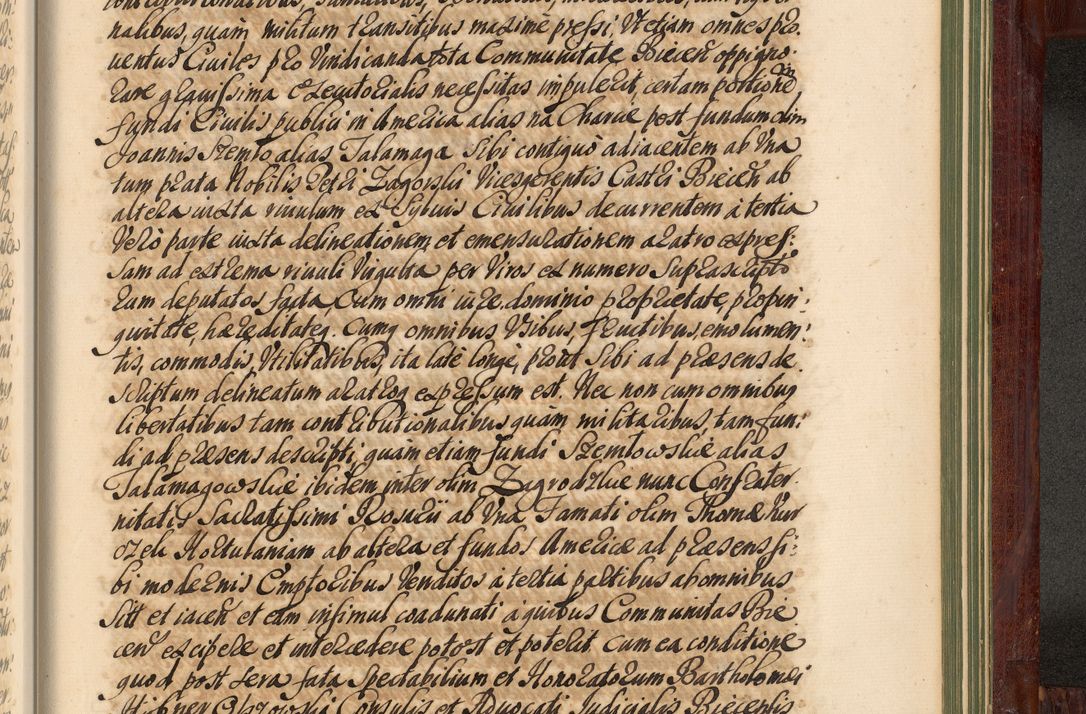 nalibus, quàm militum transitibus maxime pressi, Vt etiam omnes pro
uentus Ciuiles pro Vindicanda tota Communitate Biecen oppigno-
rare grauissima exeutorialis necessitas impulerit, certam portionē
fundi Ciuilis publici in America alias na Charcie post fundum olim
Joannis Szemło alias Talamaga Sibi contiguò adiacentem ab Vna
tum prata Nobilis Petri Zagorski Vicesgerentis Castri Biecen ab
altera iuxta riuulum ex Syluis Ciuilibus decurrentem à tertia
Verò parte iuxta delineationem et emensurationem aratro expres:
sam ad extrema riuuli Virgulta per Viros ex numero Suprascripto
rum deputatos facta, Cum omni iure dominio proprietate, propin:
quitate, hæreditateq. Cumq omnibus Vsibus, fructibus, emolumen:
tis, commodis, Vtilitatibbus, ita late longe, prout Sibi ad præsens de
scriptum delineatum aratroq expressum est. Nec non cum omnibus
libertatibus tam contributionalibus quàm militaribus, tam fun:
di ad præsens descripti, quam etiam fundi Szemłowskie alias
Talamagowskie ibidem inter olim Zagrodzkie nunc Confrater-
nitatis Sacratissimi Rosarii ab Vna Famati olim Thomæ Kur
ozek Hortulaniam ab altera et fundos Americæ ad præsens si:
bi modernis Emptoribus Venditos à tertia partibus ab omnibus
Sitt et iacen et eam in simul coadunati à quibus Communitas Bie
cen excipere et intercedere potost et poterit cum ea conditione
quod post sera fata Spectabilium et Honoratorum Bartholomæi
Hibner Olszowski Consulis et Aduocati Judicialis Biecensis